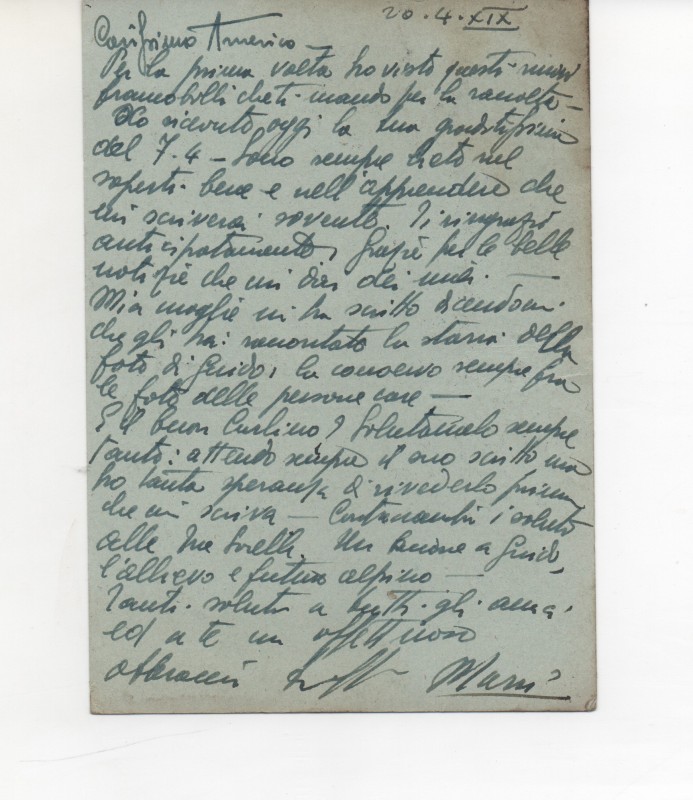 20.4.XIX
Carissimo Americo —
Per la prima volta ho visto questi nuovi
francobolli che ti mando per la raccolta —
Ho ricevuto oggi la tua graditissima
del 7.4 — Sono sempre lieto nel
saperti bene e nell'apprendere che
mi scriverai sovente. Ti ringrazio
anticipatamente, Grazie per le belle
notizie che mi dai dei miei. —
Mia moglie mi ha scritto dicendomi
che gli hai raccontato la storia della
foto di Guido, la conservo sempre fra
le foto delle persone care —
E il buon Carlino? Salutamelo sempre
tanto: attendo sempre il suo scritto ma
ho tanta speranza di rivederlo prima
che mi scriva — Contracambia i saluti
alle tue sorelle. Un bacione a Guido,
l'allievo e futuro alpino —
Tanti saluti a tutti gli amici
ed a te un affettuoso
abbraccio Mario